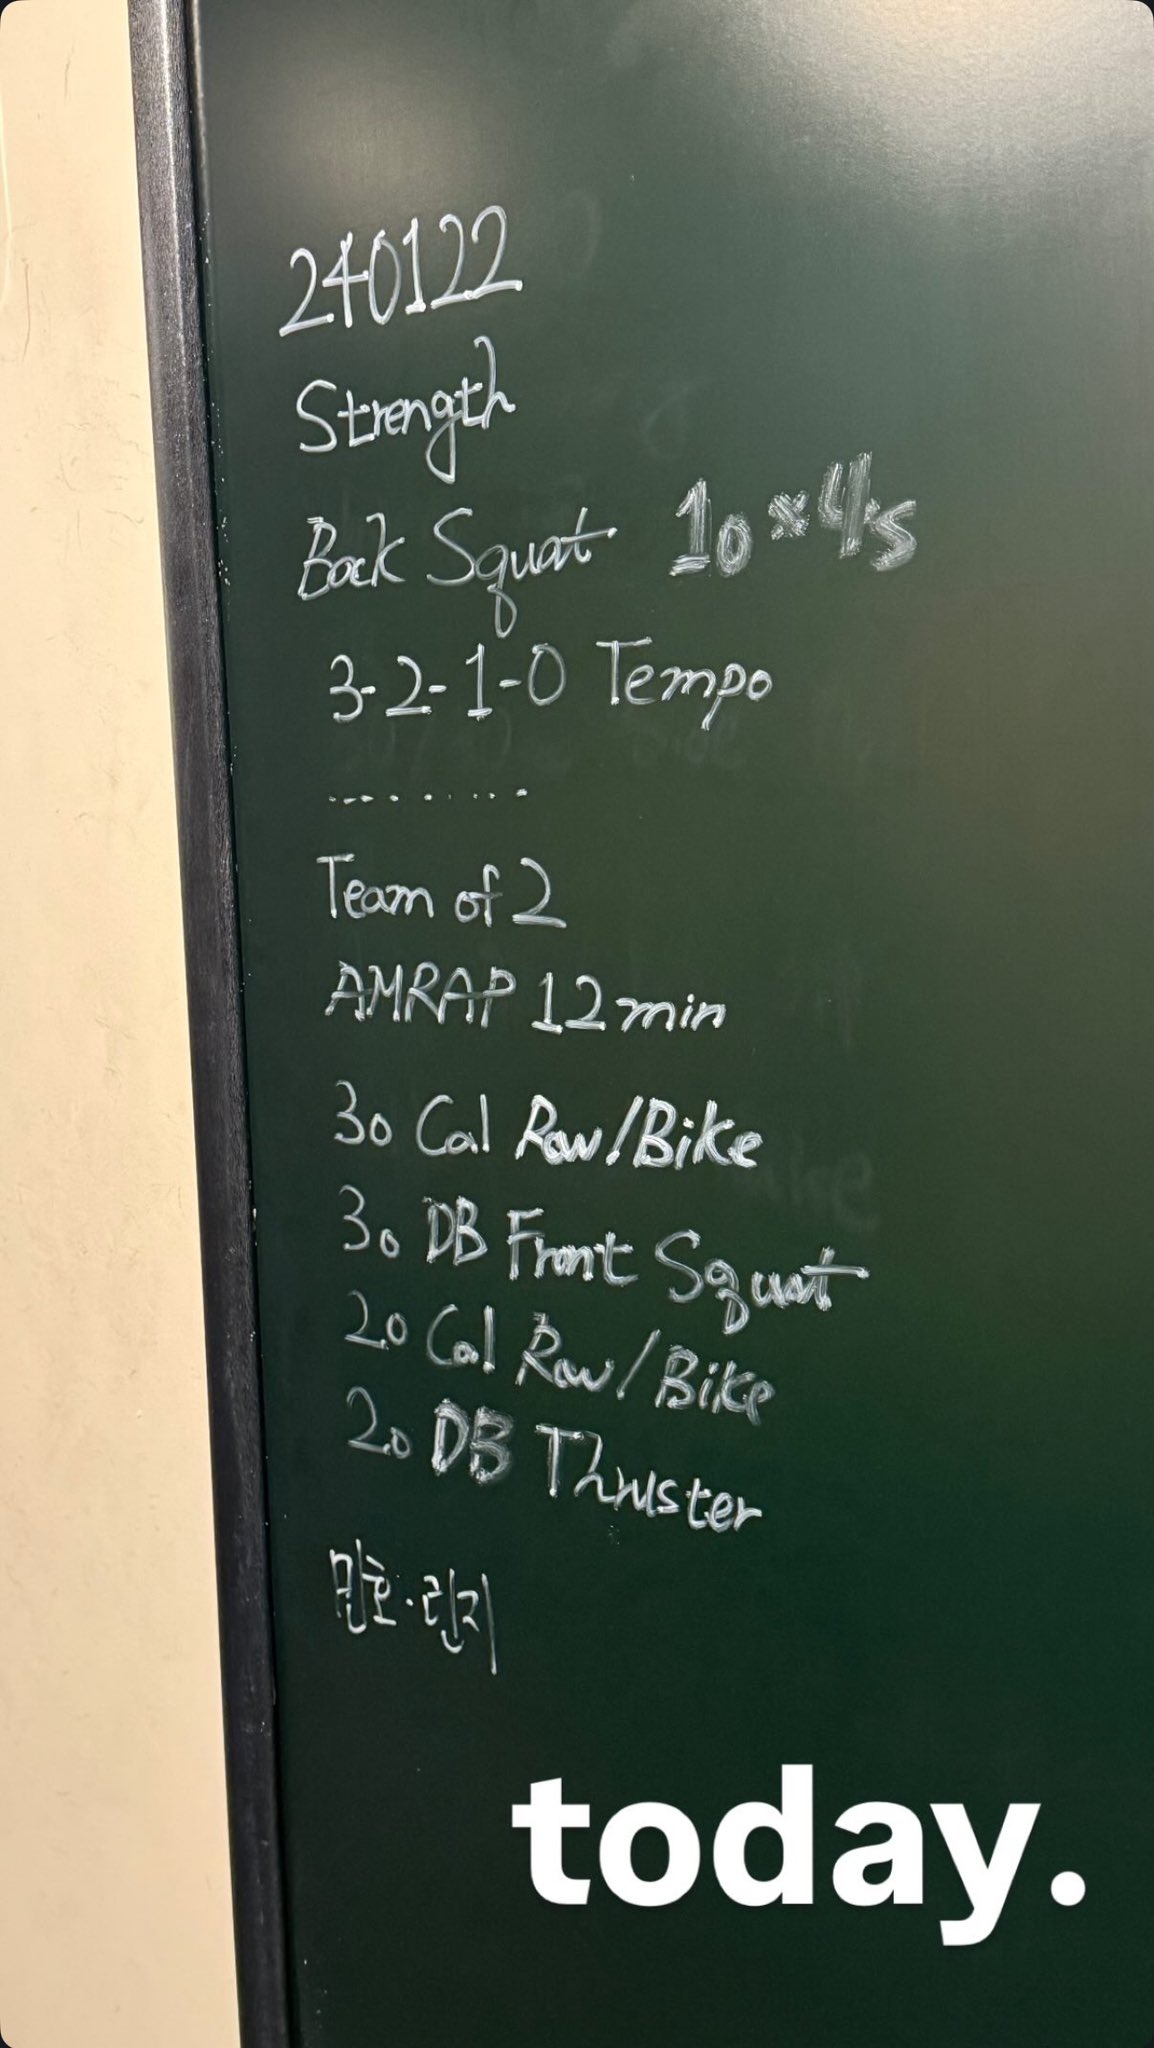 240122
Strength
Back Squat 10×4s
3-2-1-0 Tempo
.........
Team of 2
AMRAP 12min
30 Cal Row/Bike
30 DB Front Squat
20 Cal Row/Bike
20 DB Thruster
민호·린지
today.